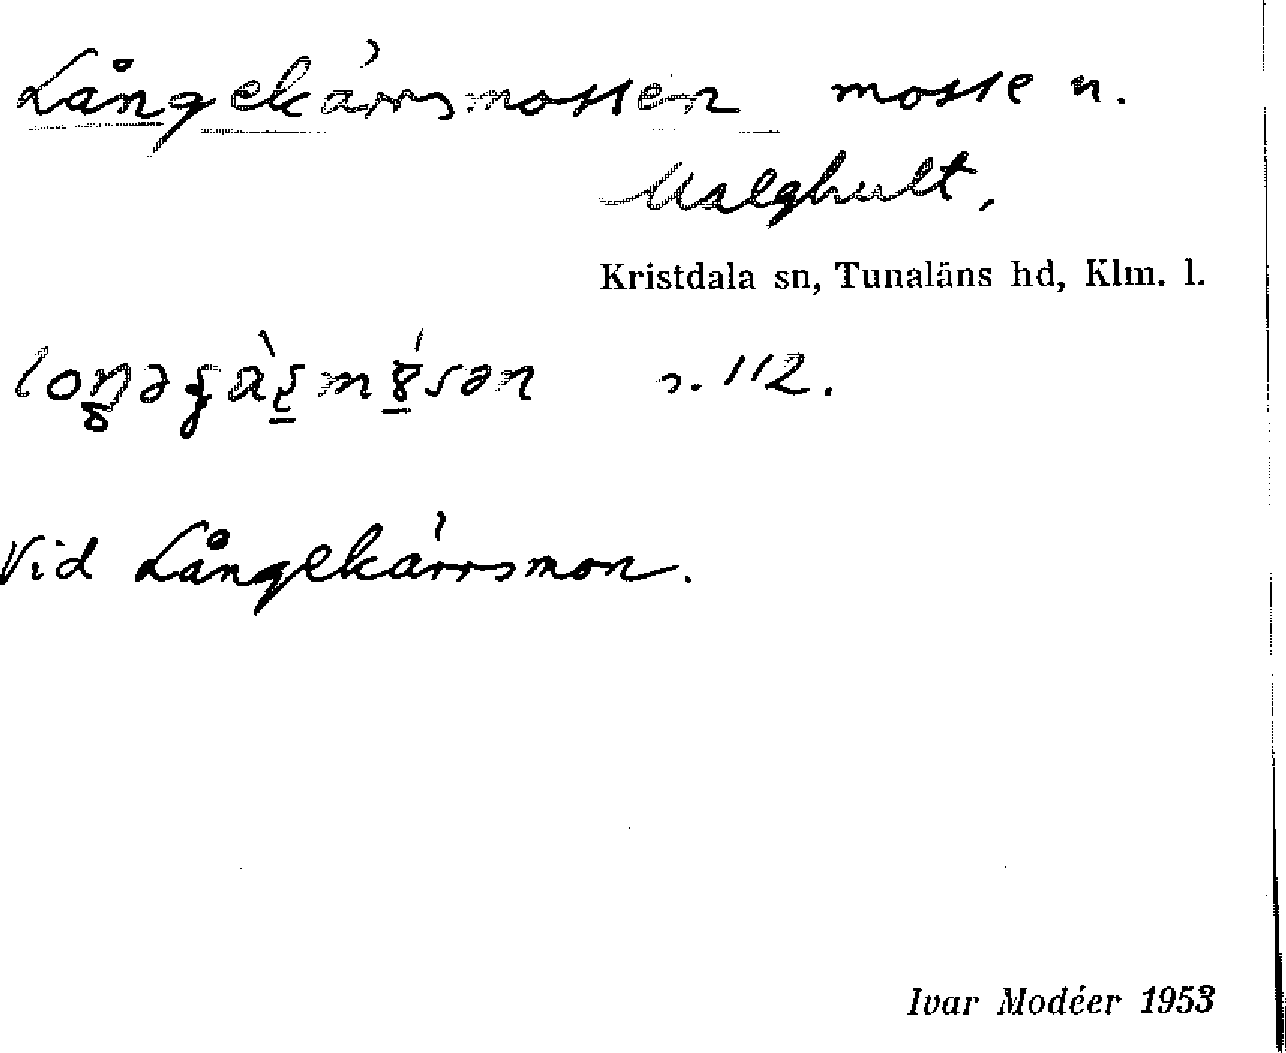 Långekärrsmossen mosse n.
Malghult,
Kristdala sn, Tunaläns hd, Klm. l.
s. 112.
Vid Långekärrsmon.
Ivar Modéer 1953